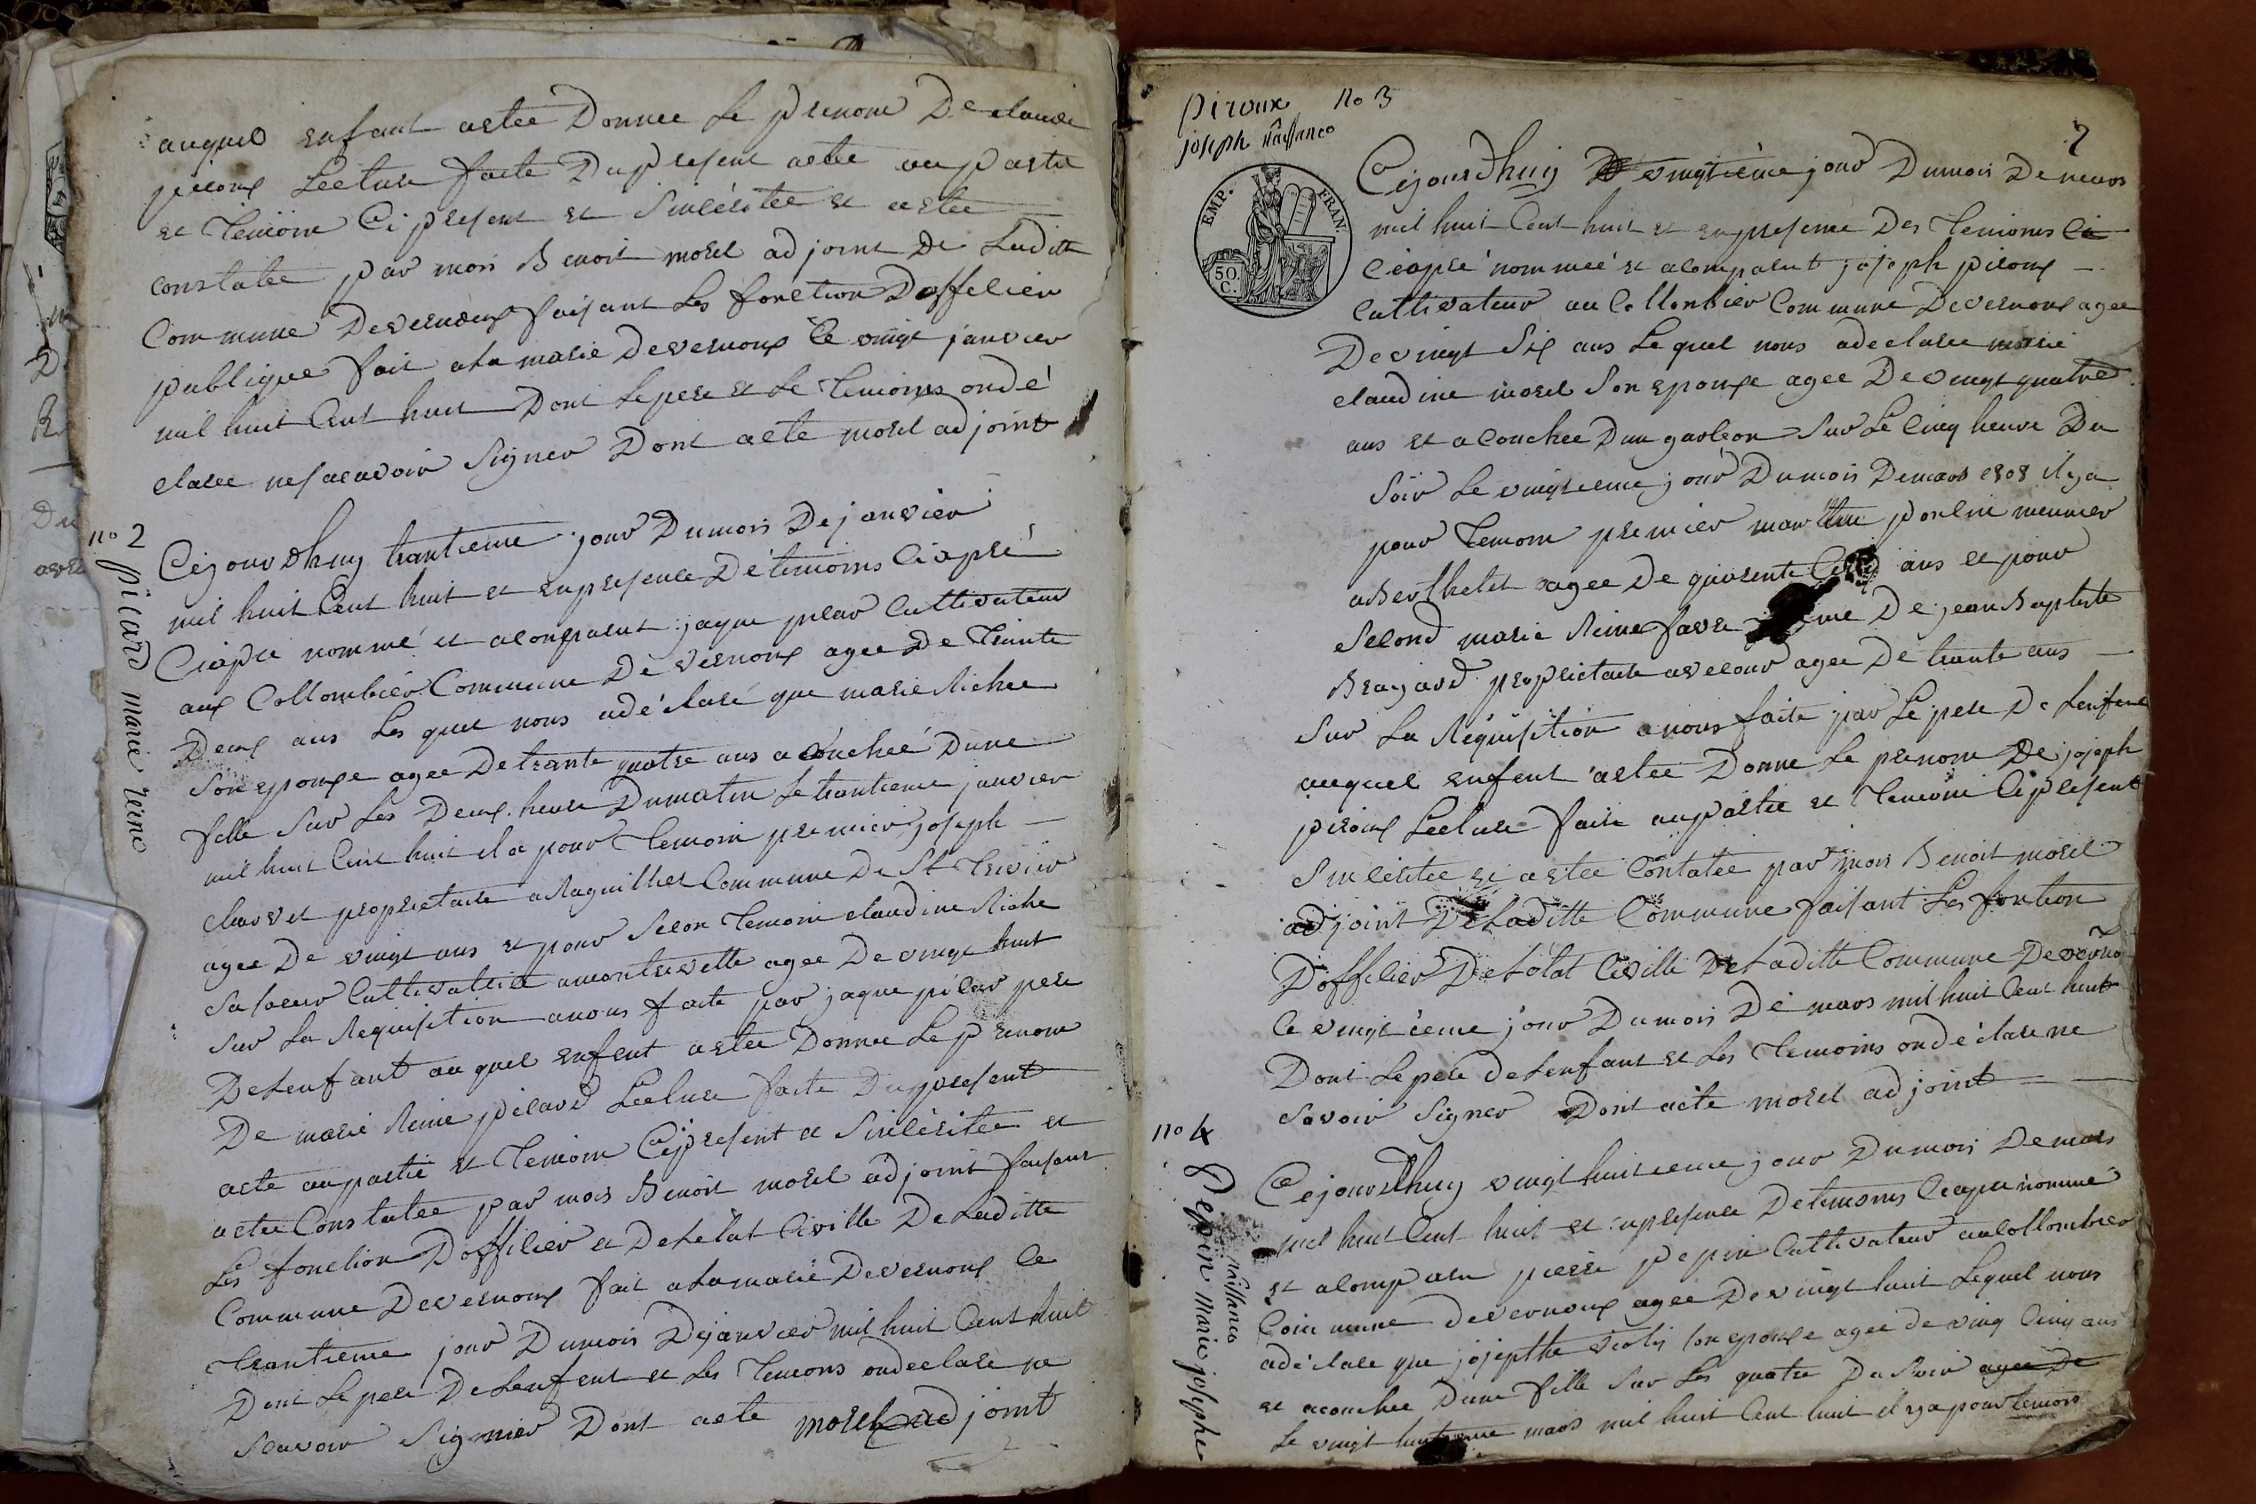 auquel enfant a etee Donnee Le prenom De claude
piroux Lecture faite Du present acte au partie
et Temoin Ci present et Sincéritée et a etee
constatée par moi Benoit morel adjoint De Laditte
Commune Devernoux faisant Les fonction Dofficier
publique fait a La marie devernoux Ce vingt janvier
mil huit Cent huit Dont Le pere et Le Temoins on dé
claree ne sacavoir Signer Dont acte morel adjoint
no 2
picard marie reine
Cejourdhuy trantieme jour Dumois De janvier
mil huit Cent huit et en presence Dé temoins Ciapré
Ciapre nommé et a Comparut jaque picar Cultivateur
aux Collombier Commune Dé vernoux agee De Trante
Deux ans Les quel nous a déclaré que marie Richee
Son epouse agee De trante quatre ans a Couchee Dune
fille Sur Les Deux heure Dumatin Le trantieme janvier
mil huit Cent huit il a pour Temoin premier joseph
Chavet propriétaire a Raguillet Commune De St Trivier
agee De vingt ans et pour Secon Temoin claudine Riche
Sa soeur Cultivatrice a montrevelle agee De vingt huit
Sur La Requisition a nous faite par jaque picar pere
De Lenfant au quel enfent a etee Donnee Le prenom
De marie Reine picard Lecture faite Du present
acte au partie et Temoin Ci present et Sincéritee et
a etee Constatée par moi Benoit morel adjoint faisant
Les fonction Dofficier et De Létat Civille De Laditte
Commune Devernoux fait a La marie Devernoux Ce
Trantieme jour Dumois De janvier mil huit Cent huit
Dont Le pere De Lenfent et Les Temons on declare ne
Scavoir Signier Dont acte morel adjoint
piroux no 3
joseph naissance
7
EMP. FRAN.
50 C.
Cejourdhuy vingtième jour Dumois De mars
mil huit Cent huit et en presence Des Temoins Ci
Ciapré nommeé et a Comparut joseph piroux
Cultivateur au Collonbier Commune Devernoux agee
De vingt Six ans Le quel nous a declaree marie
claudine morel Son epouse agee De vingt quatre
ans et a Couchee Dun garceon Sur Le Cinq heure Du
Soir Le vingtieme jour Dumois De mars 1808 il y a
pour Temoin premier marthe meunier
a Berthelet agee De quarente ans et pour
Second marie Reine favre De jean Baptiste
Brayard propriétaire a vecour agee De trante ans
Sur La Réquisition a nous faite par Le pere De Lenfent
auquel enfent a etee Donne Le prenom De joseph
piroux Lecture faite au partie et Temoin Ci present
Sincéritee et a etee Contatée par moi Benoit morel
adjoint De Laditte Commune faisant Les fontion
Dofficier De Létat Civille De Laditte Commune De verno
Ce vingtieme jour Dumois De mars mil huit Cent huit
Dont Le pere de Lenfant et Les Temoins on déclare ne
Savoir Signer Dont acte morel adjoint
no 4
pepin marie josephe
naissance
Cejourdhuy vingt huitieme jour Dumois De mars
mil huit Cent huit et en presence De temoins Ciapré nommé
et a Comparu pierre pepin Cultivateur au Collombier
Commune devernoux agee De vingt huit Lequel nous
a déclare que josephte son epouse agee de ving Cinq ans
et acouchee Dune fille Sur Les quatre Du Soir agee De
Le vingt huitieme mars mil huit Cent huit il y a pour temoin